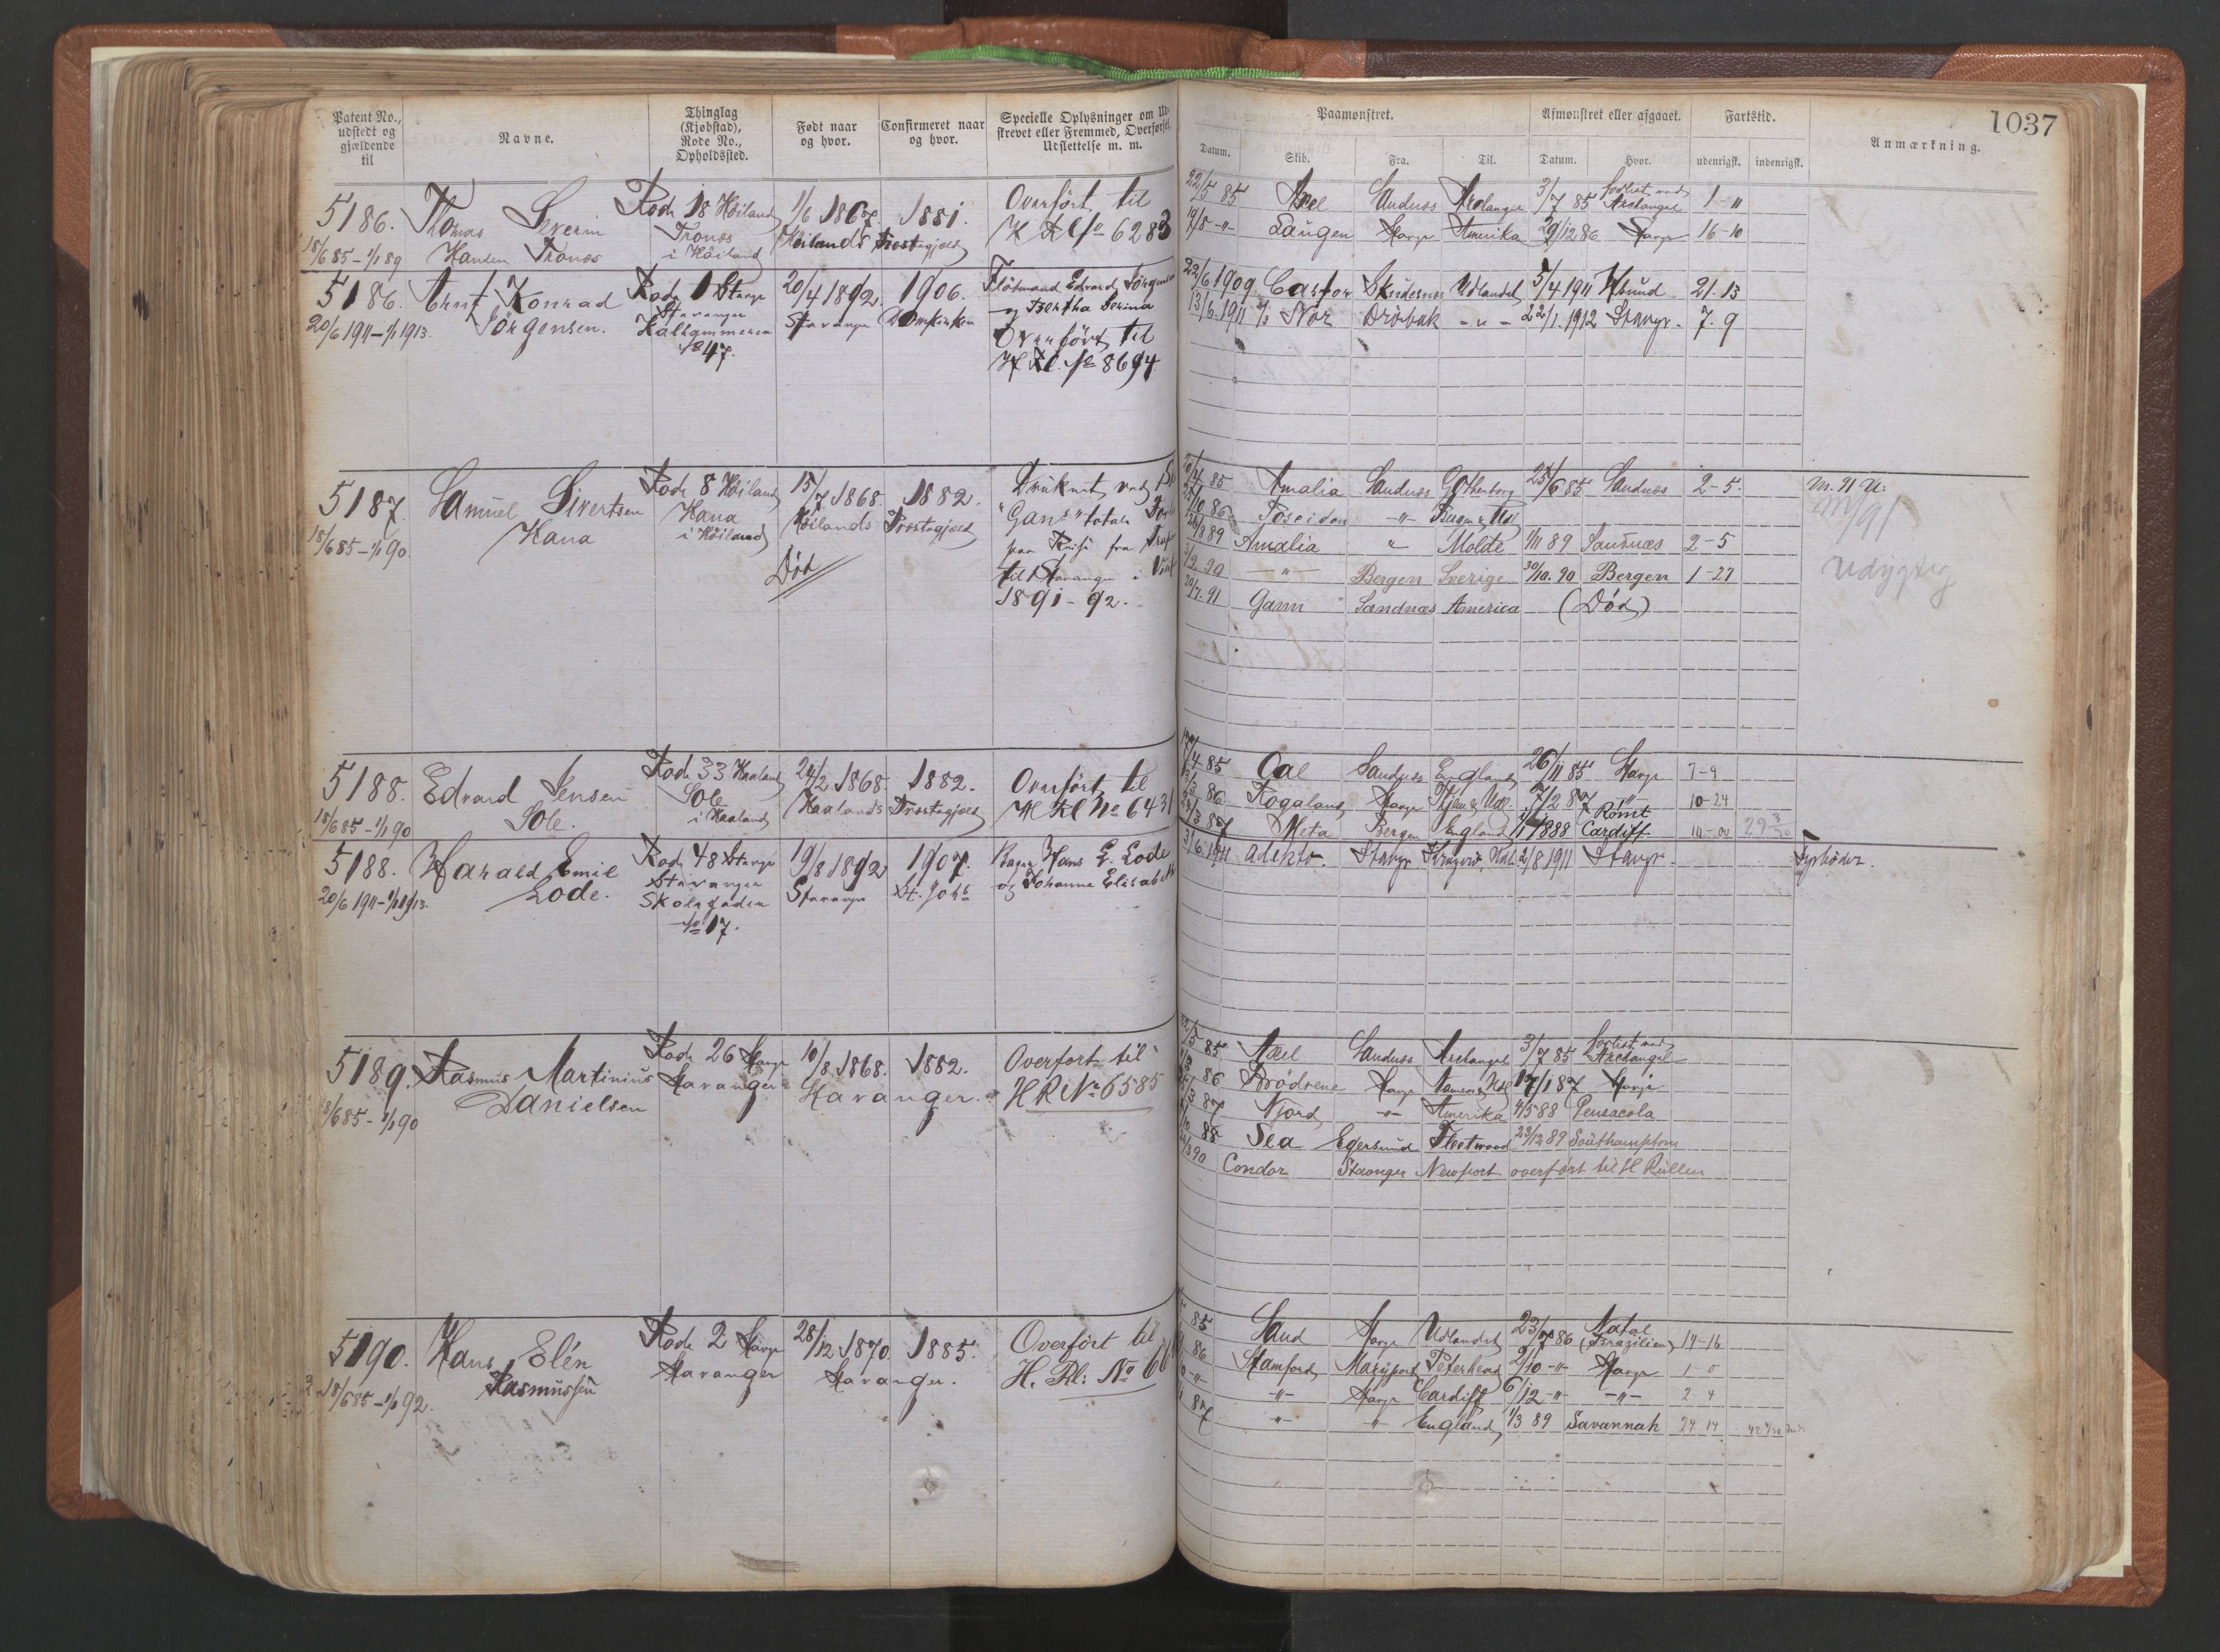 Patent No.,
udstedt og
gjældende
til
Navne.
Thinglag
(Kjøbstad),
Rode No.,
Opholdssted.
Født naar
og hvor.
Confirmeret naar
og hvor.
Specielle Oplysninger om Ud-
skrevet eller Fremmed, Overførsel,
Udslettelse m. m.
Paamønstret.
Afmønstret eller afgaaet.
Fartstid.
1037
Datum.
Skib.
Fra.
Til.
Datum.
Hvor.
udenrigsk.
indenrigsk.
Anmærkning.
5186.
18/6 85 - 1/1 89
Thomas Severin
Hansen Tronæs
Rode 18 Höiland
Tronæs
i Höiland
1/6 1867.
Höilands Præstegjeld
1881.
Overført til
H Rl No 6283
22/5 85 Axel Sandnæs Archangel 3/7 85 Forlist ved Archangel 1 - "
14/8 - " Laugen Stavgr Amerika 29/12 86 Stavgr 16 - 10
5186.
20/6 1911 - 1/1 1913.
Arnt Konrad
Jörgensen.
Rode 1 Stavgr
Stavanger
Kalhammeren
No 47.
20/4 1892.
Stavanger
1906.
Domkirken
Flötmand Edvard Jörgensen
og Bertha Serina
Overført til
H Rl. No 8694
22/6 1909 Castor Skudesnes Udlandet 5/4 1911 21. 13
13/6. 1911 Nor Dröbak - " - 22/1. 1912 Stavgr. 7. 9
5187.
18/6 85 - 1/1 90.
Samuel Sivertsen
Hana
Rode 8 Höiland
Hana
i Höiland
15/7 1868.
Höilands Præstegjeld
1882.
Död
Druknet ved
"Gans" totale
paa Reise fra
til Stavanger i
1891 - 92.
85 Amalia Sandnæs Gothenborg 25/6 85 Sandnæs 2 - 5.
10 86 Poseidon - " - Bergen & Udl
89 Amalia " Molde 1/11 89 Sandnæs 2 - 5
90 - " - Bergen Sverige 30/10. 90 Bergen 1 - 27
29/7. 91 Gann Sandnæs America (Död)
M. 91 U.
Udygtig
5188.
18/6 85 - 1/1 90
Edvard Jensen
Sole.
Rode 33 Haaland
Sole
i Haaland
24/2 1868.
Haalands Præstegjeld
1882.
Overført til
H Rl No 6431
85 Oal Sandnæs England 26/11 85 Stavgr 7 - 9
86 Rogaland Stavgr 7/2 87 - " - 10 - 24
87 Meta Bergen England 1888 Rømt Cardiff 10 - 00
5188.
20/6 1911 - 1/1 1913.
Harald Emil
Lode.
Rode 48 Stavgr
Stavanger
Skolegaden
No 17.
19/8 1892
Stavanger
1907.
St. Johs
Bager Hans E. Lode
og Johanne Elisabeth
1911 Adekto. Stavgr. 2/8 1911 Stavgr.
Fyrböder.
5189.
18/6 85 - 1/1 90
Rasmus Martinius
Danielsen
Rode 26 Stavgr
Stavanger
10/8 1868.
1882.
Stavanger.
Overført til
H Rl No 6585
22/5 85. Axel Sandnæs Archangel 3/7 85 Forlist ved Archangel
86 Brödrene Stavgr 17/1 87 Stavgr
87 Njord - " - Amerika 4/5 88 Pensacola
88 Sea Egersund Fleetwood 23/12 89 Southampton
90 Condor Stavanger Newport overført til H Rullen
5190.
18/6 85 - 1/1 92.
Hans Elén
Rasmussen
Rode 2 Stavgr
Stavanger
28/12 1870.
1885.
Stavanger.
Overført til
H. Rl: No
85 Sand Stavgr Udlandet 23/7 86 Natal (Brazilien) 14 - 16
86 Stamford Maryport Peterhead 2/10 - " Stavgr 1 - 0
- " - Stavgr Cardiff 6/12 - " - " - 2 4
87 - " - " England 1/3 89 Savannah 24 14